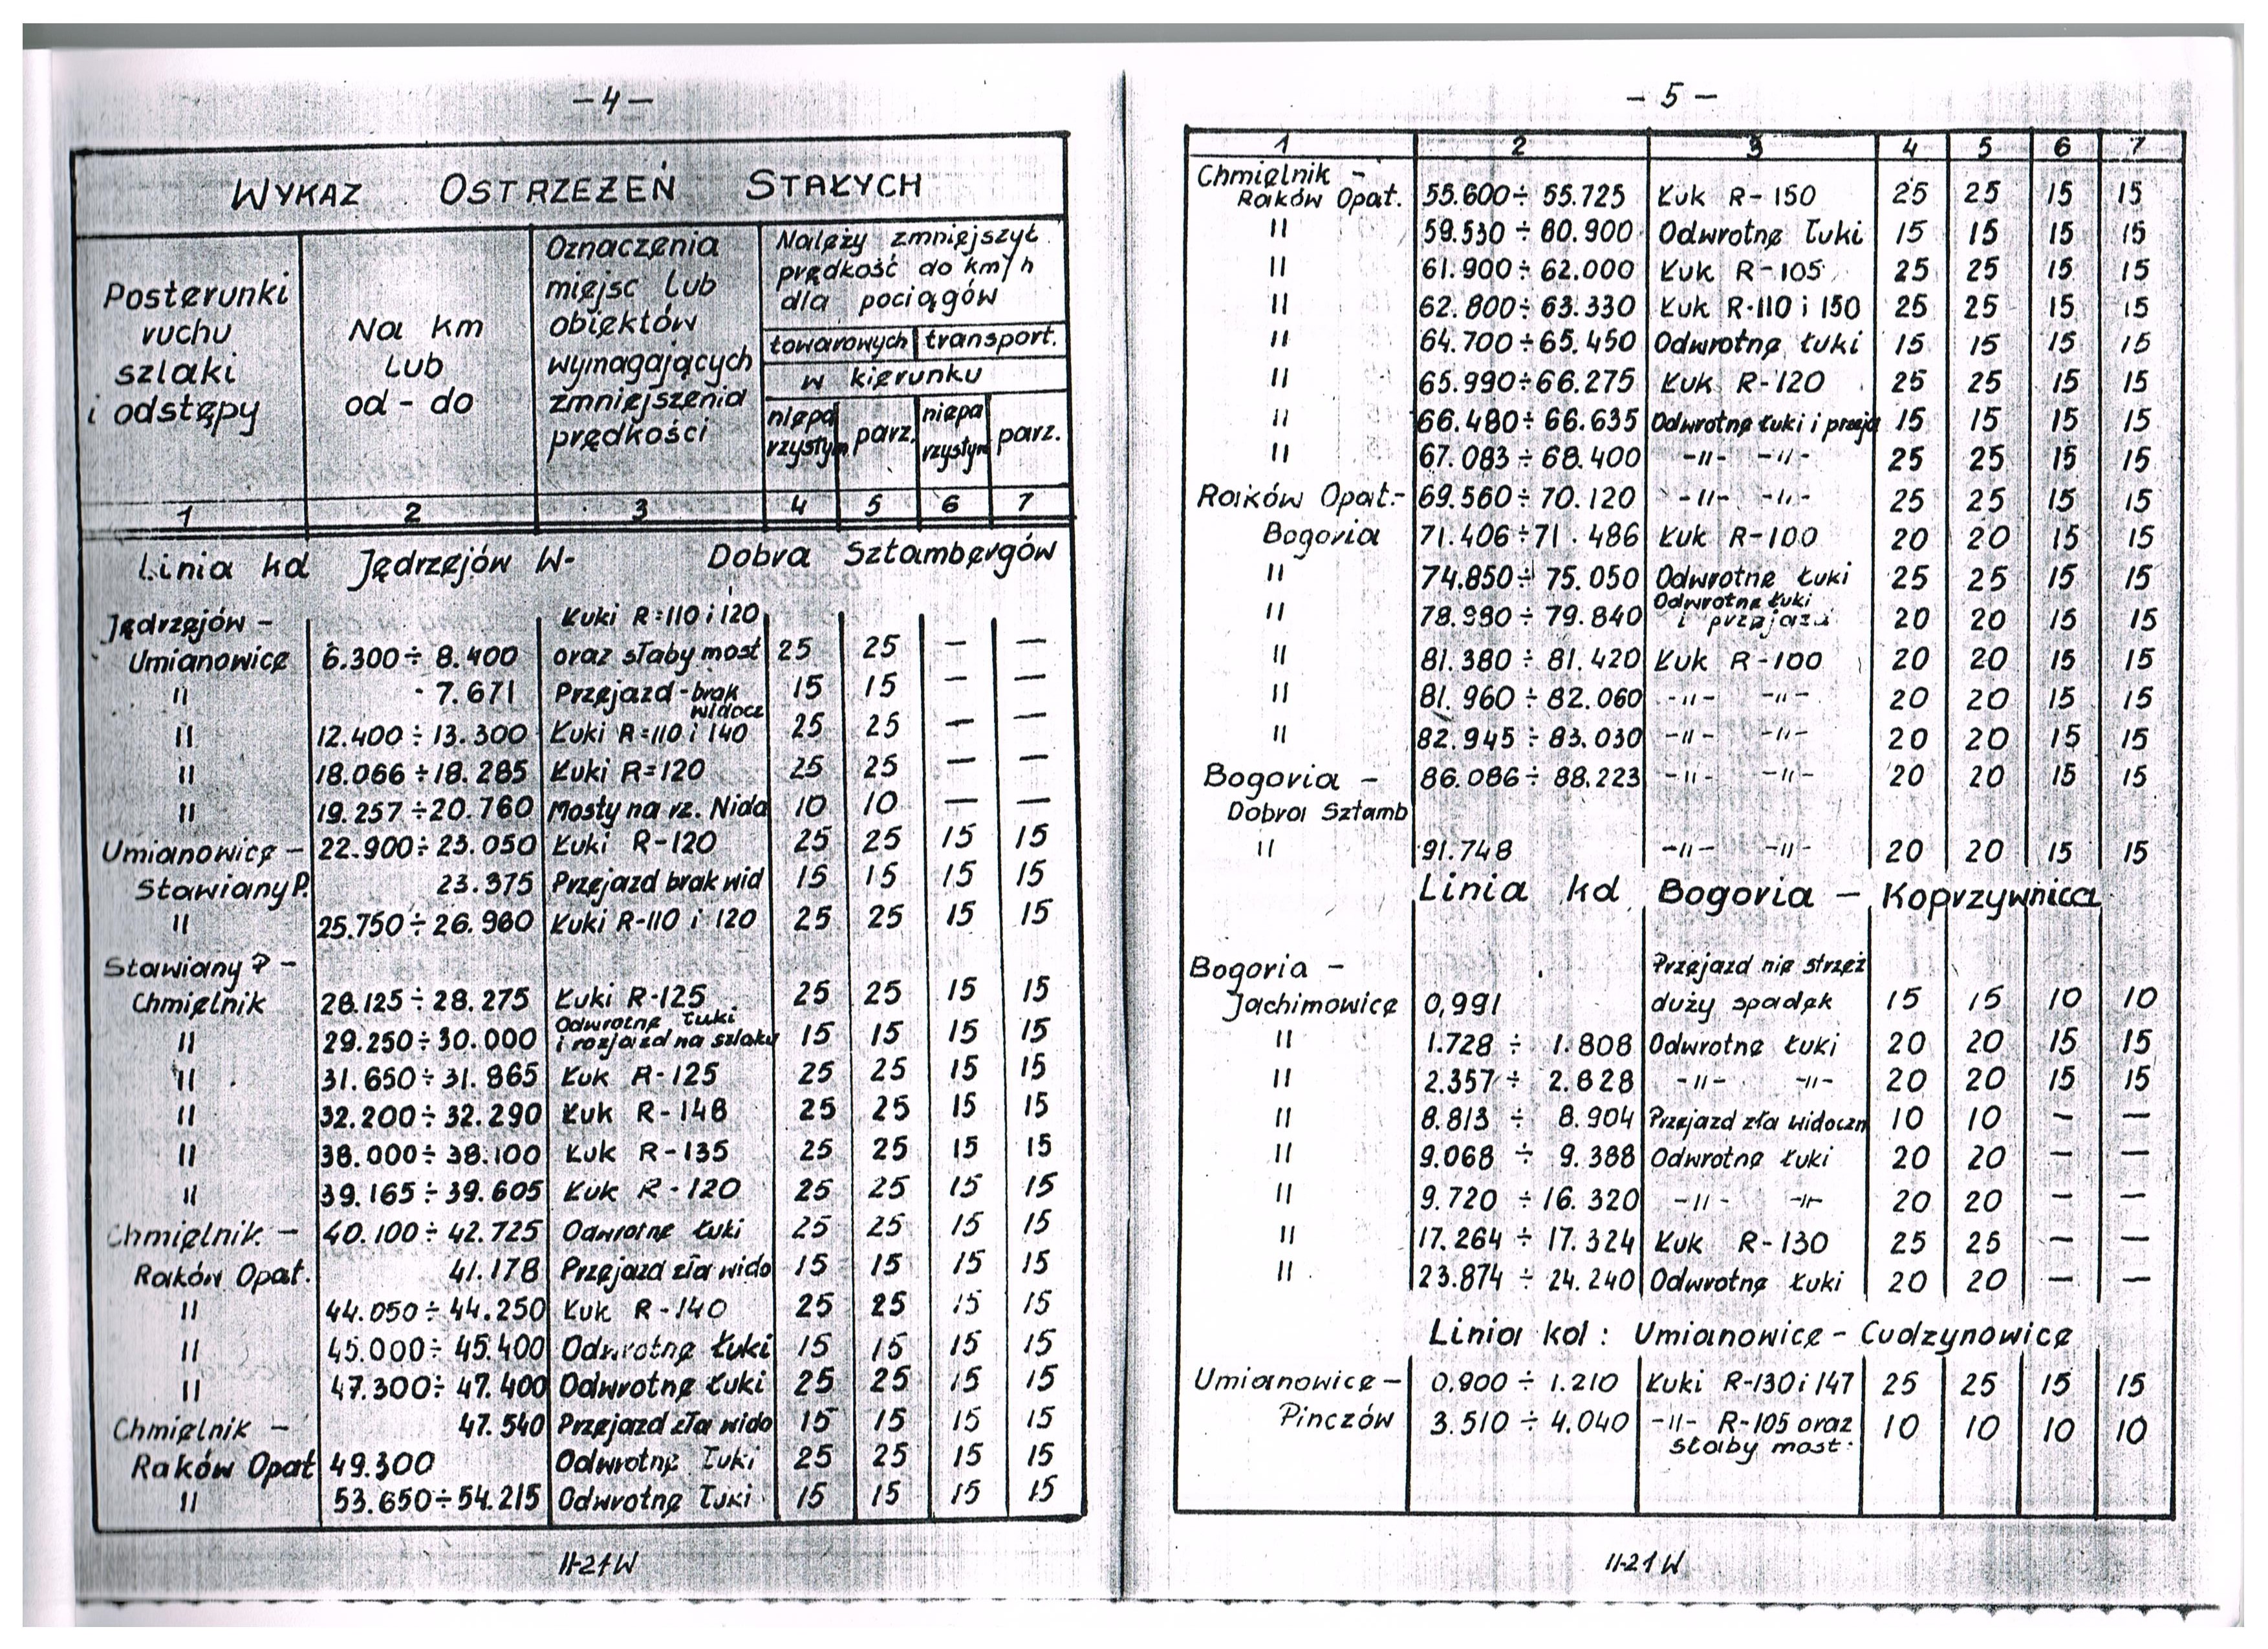 -4-
WYKAZ OSTRZEŻEŃ STAŁYCH
Posterunki ruchu szlaki i odstępy
Na km lub od - do
Oznaczenia miejsc lub obiektów wymagających zmniejszenia prędkości
Należy zmniejszyć prędkość do km/h dla pociągów
towarowych transport.
w kierunku
niepa rzystym parz. niepa rzystym parz.
1 2 3 4 5 6 7
Linia kd Jędrzejów W- Dobra Sztambergów
Jędrzejów - Łuki R=110 i 120
Umianowice 6.300÷8.400 oraz słaby most 25 25 — —
" 7.671 Przejazd - brak widocz 15 15 — —
" 12.400÷13.300 Łuki R=110 i 140 25 25 — —
" 18.066÷18.285 Łuki R=120 25 25 — —
" 19.257÷20.760 Mosty na rz. Nida 10 10 — —
Umianowice - 22.900÷23.050 Łuki R-120 25 25 15 15
Stawiany P. 23.375 Przejazd brak wid 15 15 15 15
" 25.750÷26.960 Łuki R-110 i 120 25 25 15 15
Stawiany P -
Chmielnik 28.125÷28.275 Łuki R-125 25 25 15 15
" 29.250÷30.000 Odwrotne łuki i rozjazd na szlaku 15 15 15 15
" 31.650÷31.865 Łuk R-125 25 25 15 15
" 32.200÷32.290 Łuk R-148 25 25 15 15
" 38.000÷38.100 Łuk R-135 25 25 15 15
" 39.165÷39.605 Łuk R-120 25 25 15 15
Chmielnik - 40.100÷42.725 Odwrotne łuki 25 25 15 15
Raków Opat. 41.178 Przejazd zła wido 15 15 15 15
" 44.050÷44.250 Łuk R-140 25 25 15 15
" 45.000÷45.400 Odwrotne łuki 15 15 15 15
" 47.300÷47.400 Odwrotne łuki 25 25 15 15
Chmielnik - 47.540 Przejazd zła wido 15 15 15 15
Raków Opat 49.300 Odwrotne łuki 25 25 15 15
" 53.650÷54.215 Odwrotne łuki 15 15 15 15
11-21W
- 5 -
1 2 3 4 5 6 7
Chmielnik -
Raków Opat. 55.600÷55.725 Łuk R-150 25 25 15 15
" 59.530÷60.900 Odwrotne łuki 15 15 15 15
" 61.900÷62.000 Łuk R-105 25 25 15 15
" 62.800÷63.330 Łuk R-110 i 150 25 25 15 15
" 64.700÷65.450 Odwrotne łuki 15 15 15 15
" 65.990÷66.275 Łuk R-120 25 25 15 15
" 66.480÷66.635 Odwrotne łuki i przeja 15 15 15 15
" 67.083÷68.400 -"- -"- 25 25 15 15
Raków Opat.- 69.560÷70.120 -"- -"- 25 25 15 15
Bogoria 71.406÷71.486 Łuk R-100 20 20 15 15
" 74.850÷75.050 Odwrotne łuki 25 25 15 15
" 78.980÷79.840 Odwrotne łuki i przejazd 20 20 15 15
" 81.380÷81.420 Łuk R-100 20 20 15 15
" 81.960÷82.060 -"- -"- 20 20 15 15
" 82.945÷83.030 -"- -"- 20 20 15 15
Bogoria - 86.086÷88.223 -"- -"- 20 20 15 15
Dobra Sztamb
" 91.748 -"- -"- 20 20 15 15
Linia kd Bogoria - Koprzywnica
Bogoria - Przejazd nie strzeż
Jachimowice 0,991 duży spadek 15 15 10 10
" 1.728 ÷ 1.808 Odwrotne łuki 20 20 15 15
" 2.357 ÷ 2.828 -"- -"- 20 20 15 15
" 8.813 ÷ 8.904 Przejazd zła widoczn 10 10 — —
" 9.068 ÷ 9.388 Odwrotne łuki 20 20 — —
" 9.720 ÷ 16.320 -"- -"- 20 20 — —
" 17.264 ÷ 17.324 Łuk R-130 25 25 — —
" 23.874 ÷ 24.240 Odwrotne łuki 20 20 — —
Linia kol: Umianowice - Cudzynowice
Umianowice - 0.900 ÷ 1.210 Łuki R-130 i 147 25 25 15 15
Pinczów 3.510 ÷ 4.040 -"- R-105 oraz słaby most 10 10 10 10
11-21W